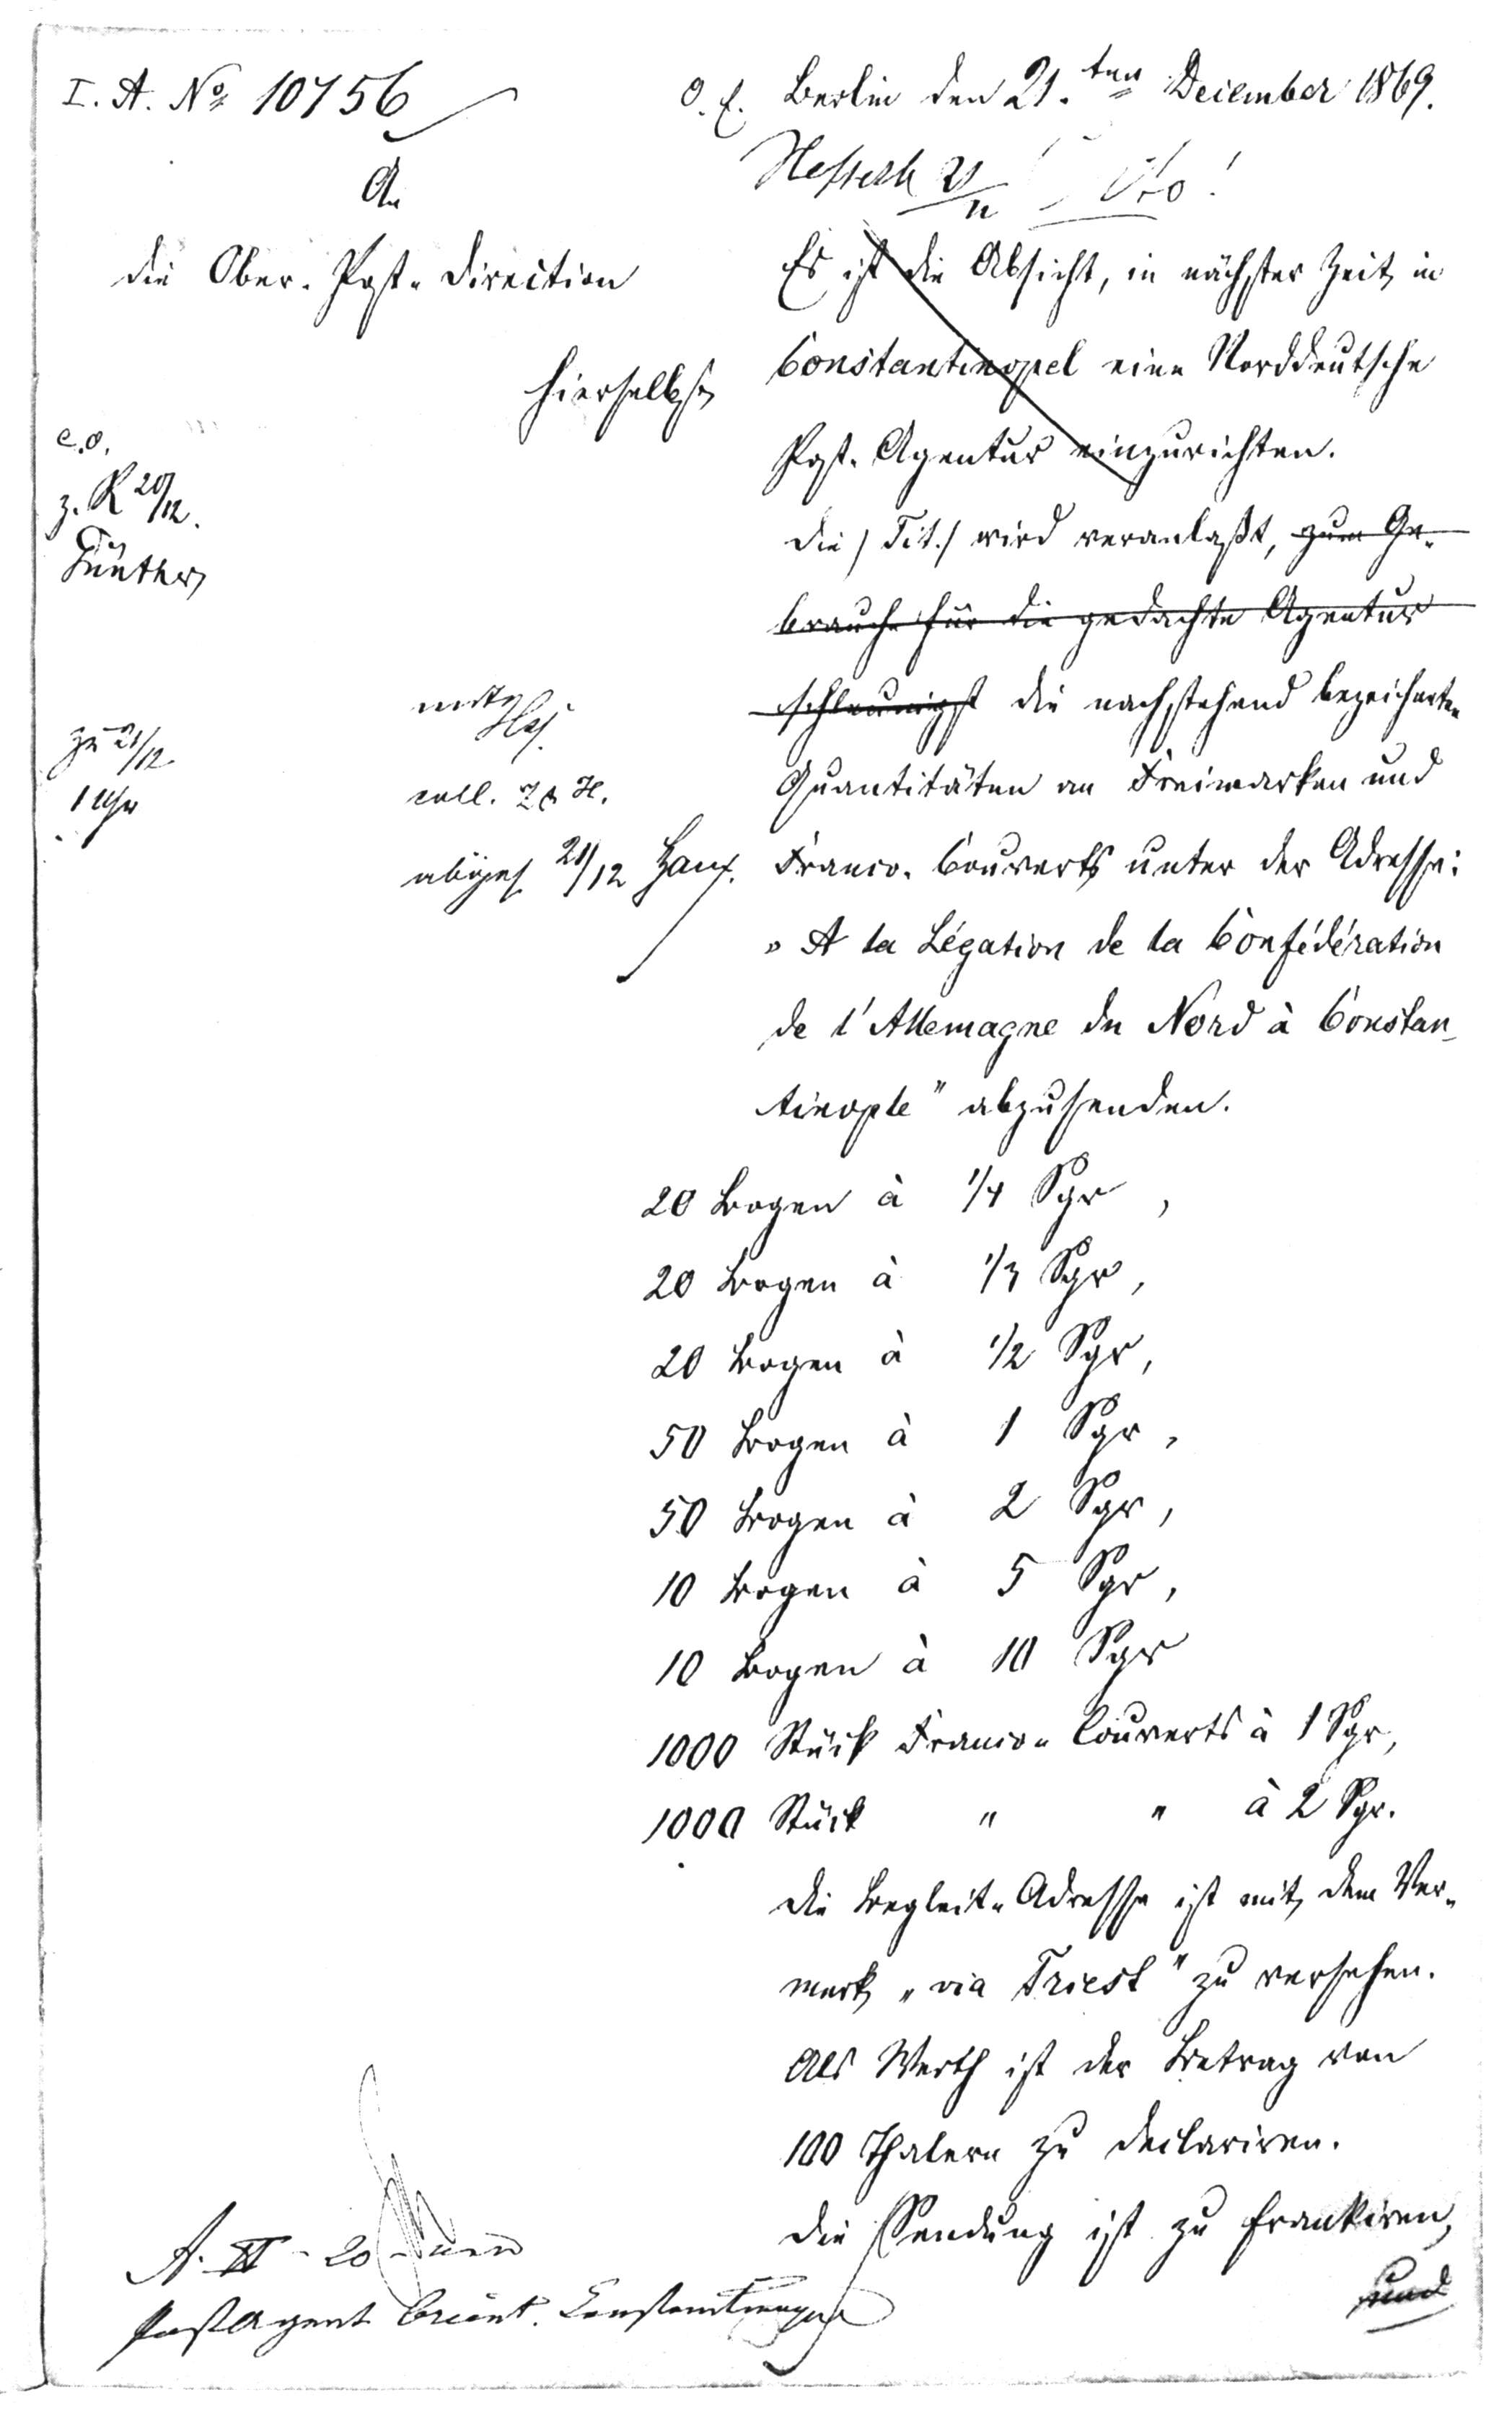 I. A. No 10756
Berlin den 21.ten December 1869.
An
die Ober-Post-Direction
hierselbst
Cito!
Es ist die Absicht, in nächster Zeit in
Constantinopel eine Norddeutsche
Post-Agentur einzurichten.
Die /Tit./ wird veranlaßt, zum Ge-
brauche für die gedachte Agentur
schleunigst die nachstehend bezeichneten
Quantitäten an Freimarken und
Franco-Couverts unter der Adresse:
„A la Légation de la Confédération
de l'Allemagne du Nord à Constan-
tinople" abzusenden.
20 Bogen à 1/4 Sgr,
20 Bogen à 1/3 Sgr,
20 Bogen à 1/2 Sgr,
50 Bogen à 1 Sgr,
50 Bogen à 2 Sgr,
10 Bogen à 5 Sgr,
10 Bogen à 10 Sgr
1000 Stück Franco-Couverts à 1 Sgr,
1000 Stück " " à 2 Sgr.
Die Begleit-Adresse ist mit dem Ver-
merk „via Triest" zu versehen.
Als Werth ist der Betrag von
100 Thalern zu declariren.
Die Sendung ist zu frankiren,
und
e.o.
z. R 20/12.
Günther
zu 21/12
1 Uhr
21/12
A. II - 20
Postagent Orient. Constantinopel